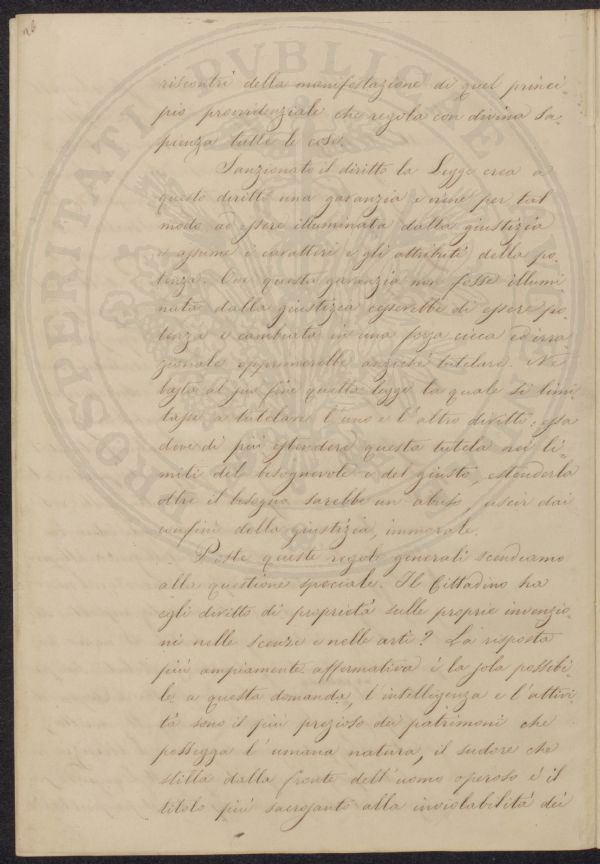 26
riscontri della manifestazione di quel princi-
pio provvidenziale che regola con divina Sa-
pienza tutte le cose.
Sanzionato il diritto la Legge crea a
questo diritto una garanzia e viene per tal
modo ad essere illuminata dalla giustizia
e assume i caratteri e gli attributi della po-
tenza. Ove questa garanzia non fosse illumi
nata dalla giustizia cesserebbe di essere po-
tenza e cambiata in una forza cieca ed irra
zionale opprimerebbe anzichè tutelare. Nè
basta al suo fine quella legge la quale si limi
tasse a tutelare l'uno e l'altro diritto; essa
deve di più estendere questa tutela nei li-
miti del bisognevole e del giusto, estenderla
oltre il bisogno sarebbe un abuso, uscir dai
confini della giustizia, immorale.
Poste queste regole generali scendiamo
alla questione speciale. Il Cittadino ha
egli diritto di proprietà sulle proprie invenzio-
ni nelle scenze e nelle arti? La risposta
più ampiamente affermativa è la sola possibi-
le a questa domanda, l'intelligenza e l'attivi-
tà sono il più prezioso dei patrimoni che
possegga l'umana natura, il sudore che
stilla dalla fronte dell'uomo operoso è il
titolo più sacrosanto alla inviolabilità dei
PROSPERITATI PVBLICAE